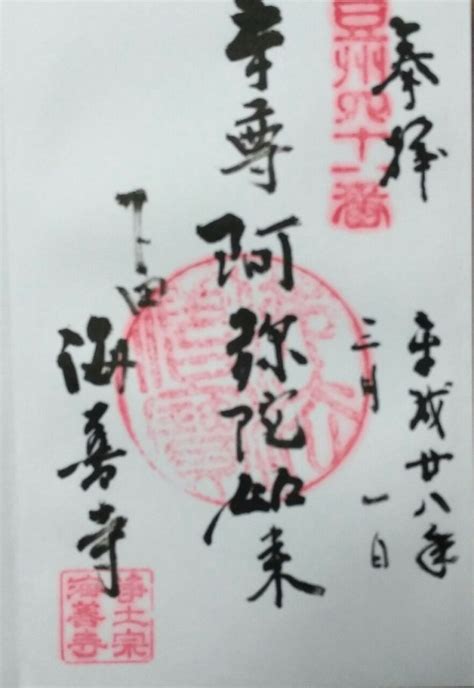 奉拝
平成廿八年
三月一日
豆州四十一番
本尊
阿弥陀如来
下田
海善寺
淨土宗
海善寺